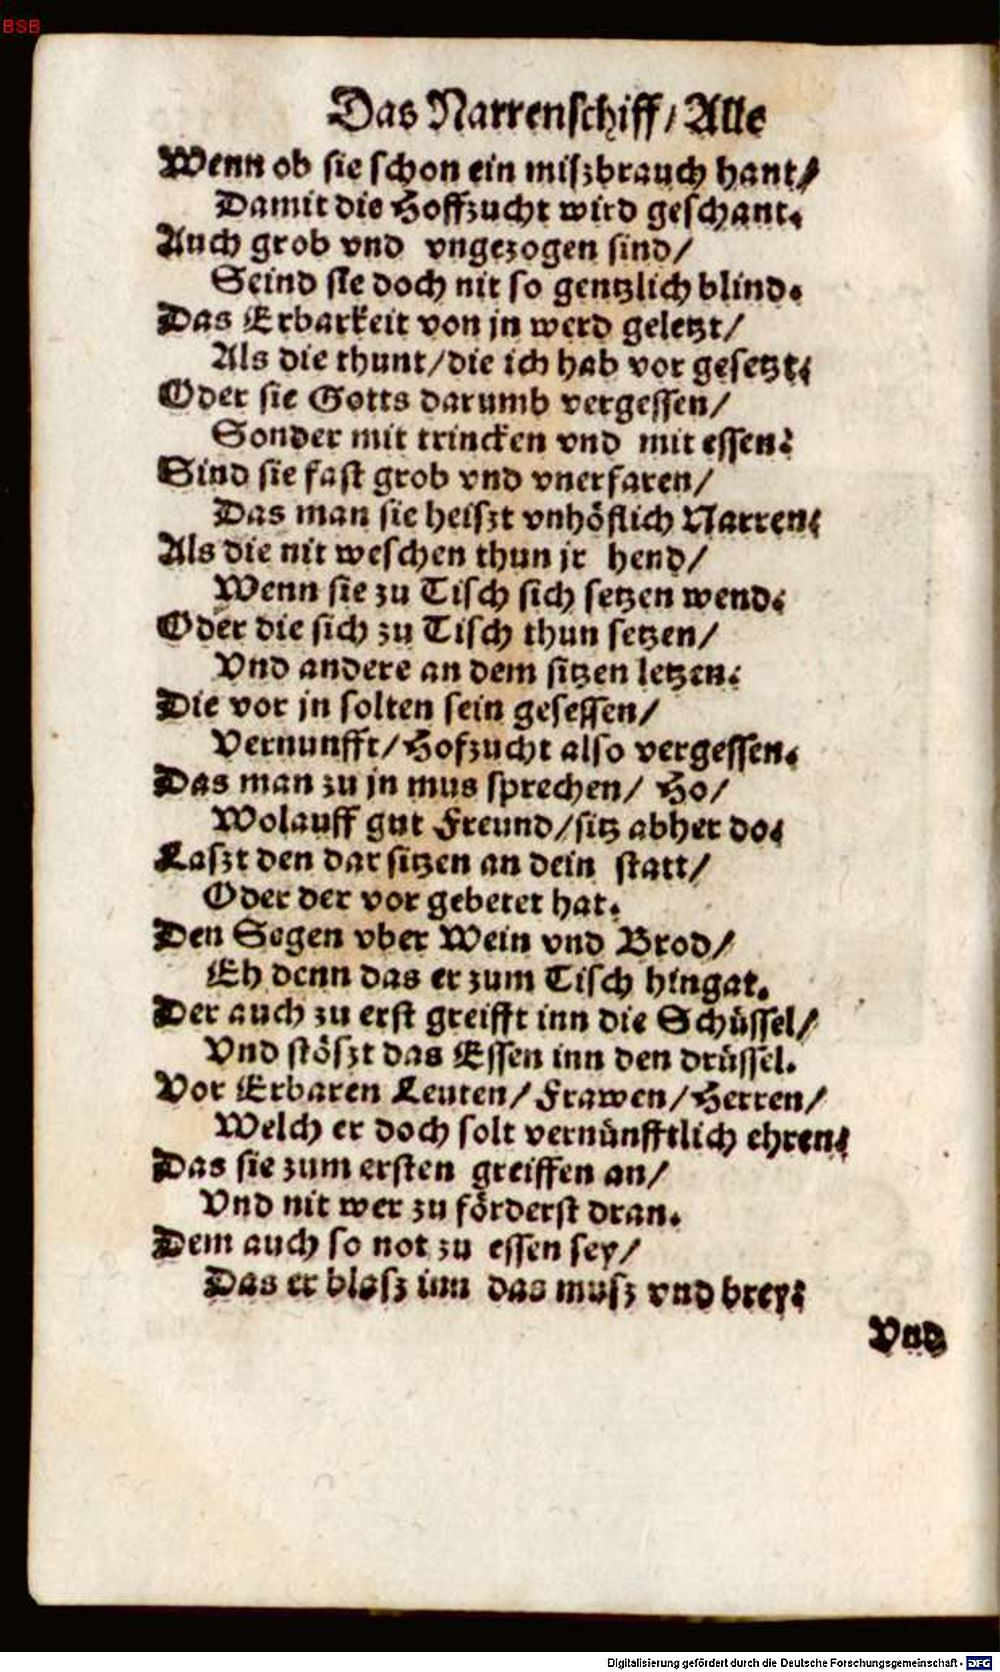 BSB
Das Narrenschiff / Alle
Wenn ob sie schon ein miszbrauch hant /
Damit die Hoffzucht wird geschant.
Auch grob vnd vngezogen sind /
Seind sie doch nit so gentzlich blind.
Das Erbarkeit von jn werd geletzt /
Als die thunt / die ich hab vor gesetzt.
Oder sie Gotts darumb vergessen /
Sonder mit trincken vnd mit essen.
Sind sie fast grob vnd vnerfaren /
Das man sie heiszt vnhöflich Narren.
Als die nit weschen thun jr hend /
Wenn sie zu Tisch sich setzen wend.
Oder die sich zu Tisch thun setzen /
Vnd andere an dem sitzen letzen.
Die vor jn solten sein gesessen /
Vernunfft / Hofzucht also vergessen.
Das man zu jn mus sprechen / Ho /
Wolauff gut Freund / sitz abher do.
Laszt den dar sitzen an dein statt /
Oder der vor gebetet hat.
Den Segen vber Wein vnd Brod /
Eh denn das er zum Tisch hingat.
Der auch zu erst greifft inn die Schüssel /
Vnd stöszt das Essen inn den drüssel.
Vor Erbaren Leuten / Frawen / Herren /
Welch er doch solt vernünfftlich ehren.
Das sie zum ersten greiffen an /
Vnd nit wer zu förderst dran.
Dem auch so not zu essen sey /
Das er blosz inn das musz vnd brey.
Vnd
Digitalisierung gefördert durch die Deutsche Forschungsgemeinschaft - DFG